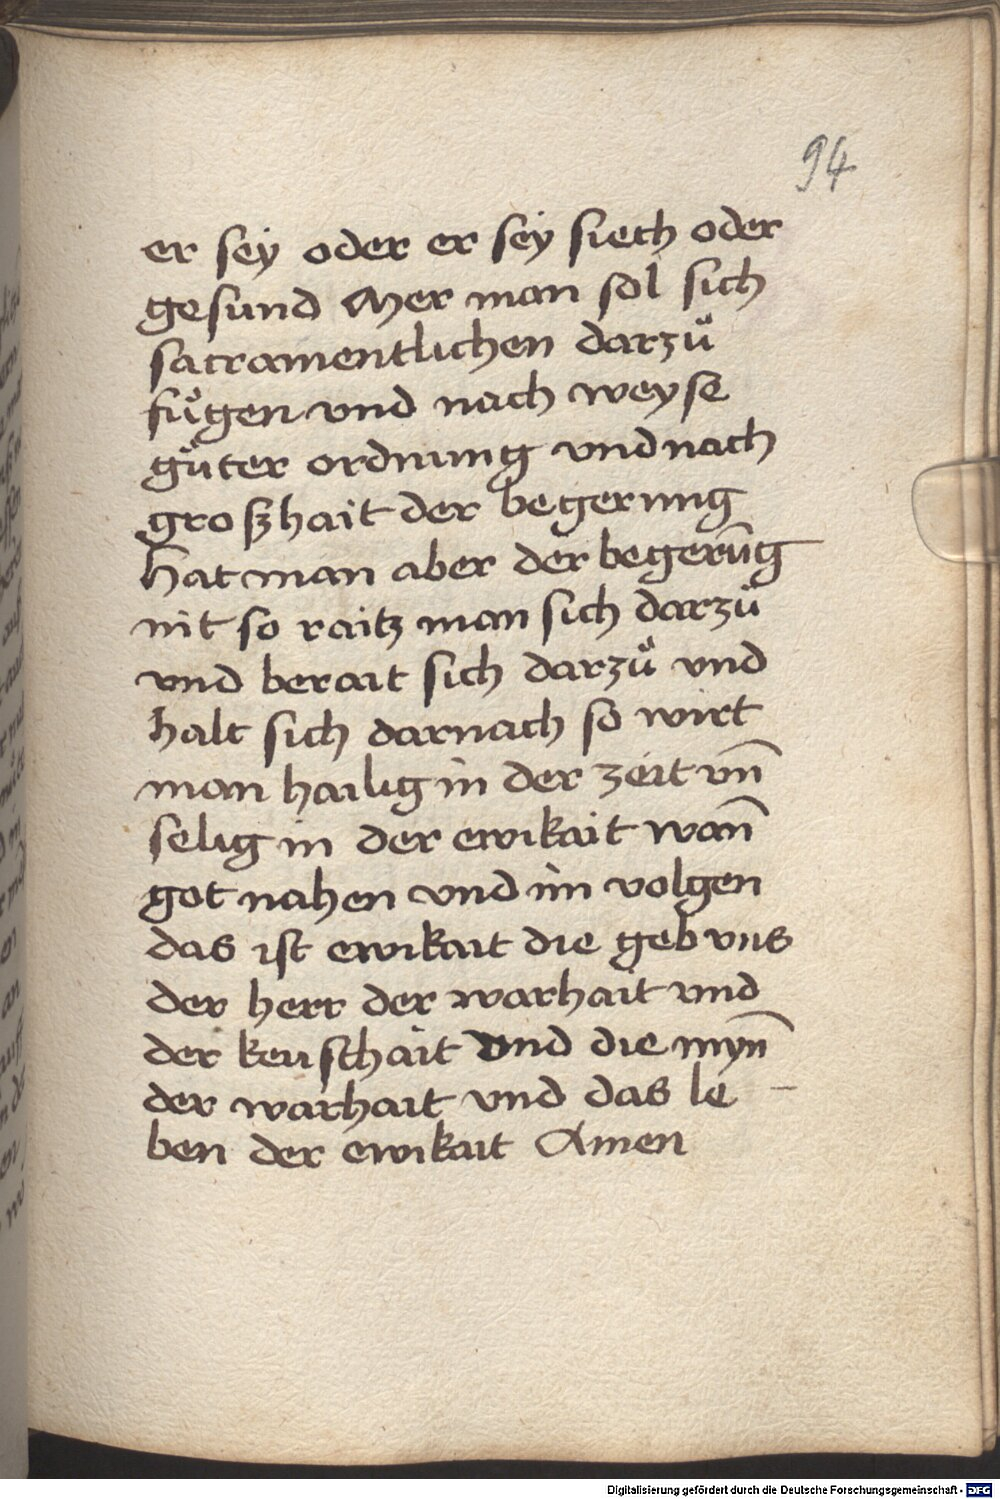 94
er sey oder er sey siech oder
gesund Mer man sol sich
sacramentlichen darzuͦ
fuͤgen vnd nach weyse
guͤter ordnung vnd nach
groszhait der begerung
hat man aber der begerūg
nit so raitz man sich darzuͦ
vnd berait sich darzuͦ vnd
halt sich darnach so wirt
man hailig in der zeit vn̄
selig in der ewikait wan̄
got nahen vnd im volgen
das ist ewikait die geb vns
der herr der warhait vnd
der keuschait vnd die myn̄
der warhait vnd das le-
ben der ewikait Amen
Digitalisierung gefördert durch die Deutsche Forschungsgemeinschaft - DFG